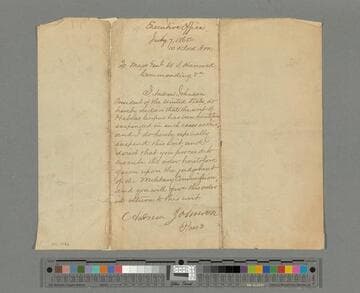 Executive Office
July 7, 1865
10 o'clock
To Major Genl W. S. Hancock
Commanding &c
I, Andrew Johnson
President of the United States, do
hereby declare that the writ of
Habeas Corpus has been heretofore
suspended in such cases as this,
and I do hereby especially
suspend this writ, and
direct that you proceed to
execute the order heretofore
given upon the judgment
of the Military Commission,
and you will give this order
in return to this writ.
Andrew Johnson
Prest